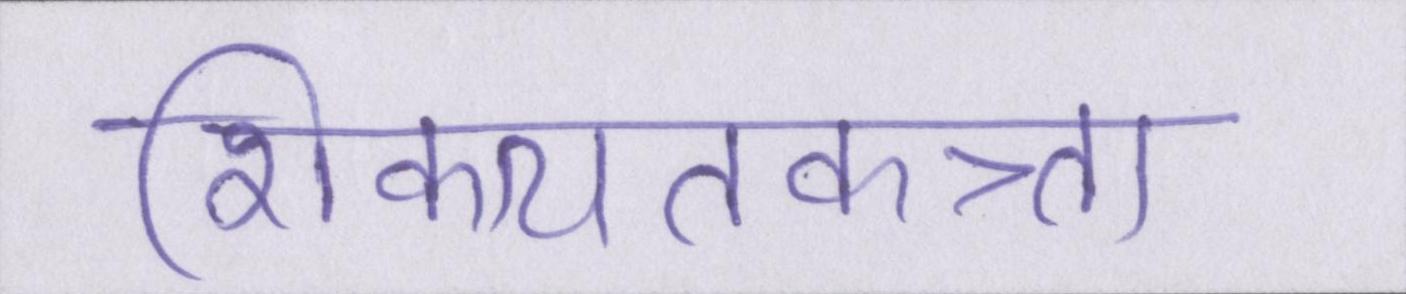 शिकायतकत्र्ता